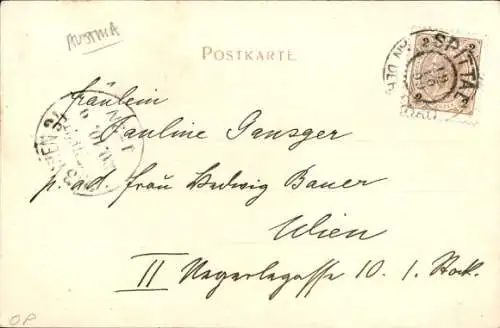 Austria
POSTKARTE
SPITTAL
AN DER
Fräulein
Pauline Gansger
p. ad. Frau Hedwig Bauer
Wien
II Negerlegasse 10. 1. Stock.
WIEN
OP